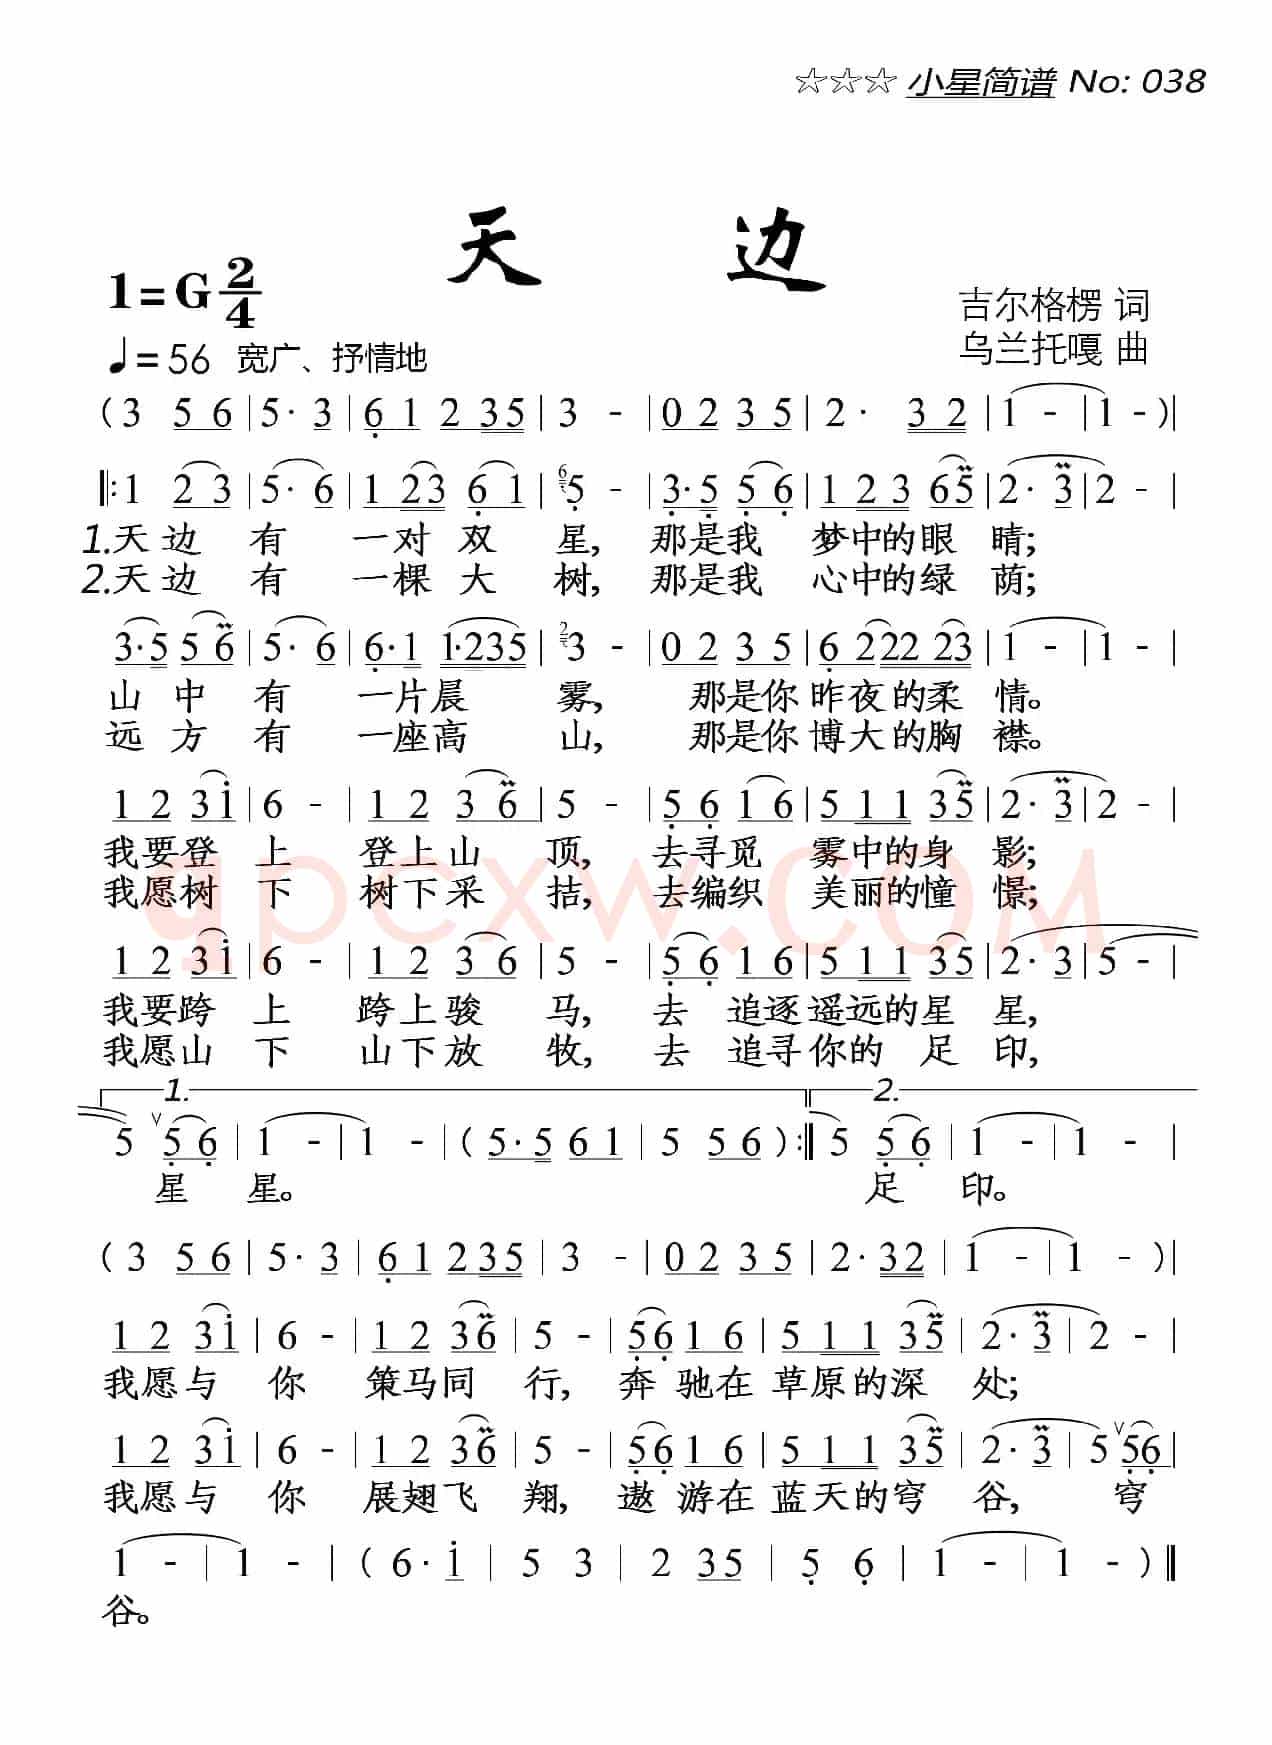 ☆☆☆ 小星简谱 No: 038
天 边
1=G 2/4
吉尔格楞 词
♩=56 宽广、抒情地
乌兰托嘎 曲
( 3 5 6 | 5· 3 | 6̣ 1 2 3 5 | 3 - | 0 2 3 5 | 2· 3 2 | 1 - | 1 - ) |
‖: 1 2 3 | 5· 6 | 1 2 3 6̣ 1 | 6 5̣ - | 3̣· 5̣ 5̣ 6̣ | 1 2 3 6 5 | 2· 3 | 2 - |
1.天 边 有 一 对 双 星, 那 是 我 梦 中 的 眼 睛;
2.天 边 有 一 棵 大 树, 那 是 我 心 中 的 绿 荫;
3· 5 5 6 | 5· 6 | 6̣· 1 1· 2 3 5 | 2 3 - | 0 2 3 5 | 6̣ 2 2 2 2 3 | 1 - | 1 - |
山 中 有 一 片 晨 雾, 那 是 你 昨 夜 的 柔 情。
远 方 有 一 座 高 山, 那 是 你 博 大 的 胸 襟。
1 2 3 1̇ | 6 - | 1 2 3 6 | 5 - | 5̣ 6̣ 1 6 | 5 1 1 3 5 | 2· 3 | 2 - |
我 要 登 上 登 上 山 顶, 去 寻 觅 雾 中 的 身 影;
我 愿 树 下 树 下 采 拮, 去 编 织 美 丽 的 憧 憬;
1 2 3 1̇ | 6 - | 1 2 3 6 | 5 - | 5̣ 6̣ 1 6 | 5 1 1 3 5 | 2· 3 | 5 - |
我 要 跨 上 跨 上 骏 马, 去 追 逐 遥 远 的 星 星,
我 愿 山 下 山 下 放 牧, 去 追 寻 你 的 足 印,
1. 2.
5 ∨ 5̣ 6̣ | 1 - | 1 - | ( 5· 5 6 1 | 5 5 6 ) :‖ 5 5̣ 6̣ | 1 - | 1 - |
星 星。 足 印。
( 3 5 6 | 5· 3 | 6̣ 1 2 3 5 | 3 - | 0 2 3 5 | 2· 3 2 | 1 - | 1 - ) |
1 2 3 1̇ | 6 - | 1 2 3 6 | 5 - | 5̣ 6̣ 1 6 | 5 1 1 3 5 | 2· 3 | 2 - |
我 愿 与 你 策 马 同 行, 奔 驰 在 草 原 的 深 处;
1 2 3 1̇ | 6 - | 1 2 3 6 | 5 - | 5̣ 6̣ 1 6 | 5 1 1 3 5 | 2· 3 | 5 ∨ 5̣ 6̣ |
我 愿 与 你 展 翅 飞 翔, 遨 游 在 蓝 天 的 穹 谷, 穹
1 - | 1 - | ( 6· 1̇ | 5 3 | 2 3 5 | 5̣ 6̣ | 1 - | 1 - ) ‖
谷。
qpcxw.COM